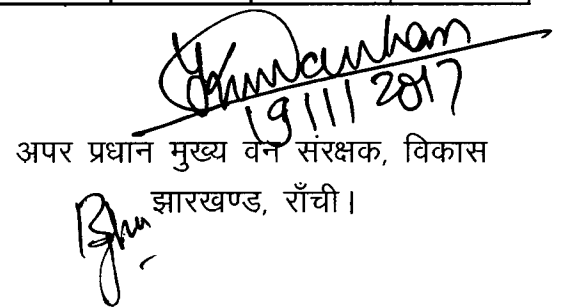 19/11/2017
अपर प्रधान मुख्य वन संरक्षक, विकास
झारखण्ड, राँची।